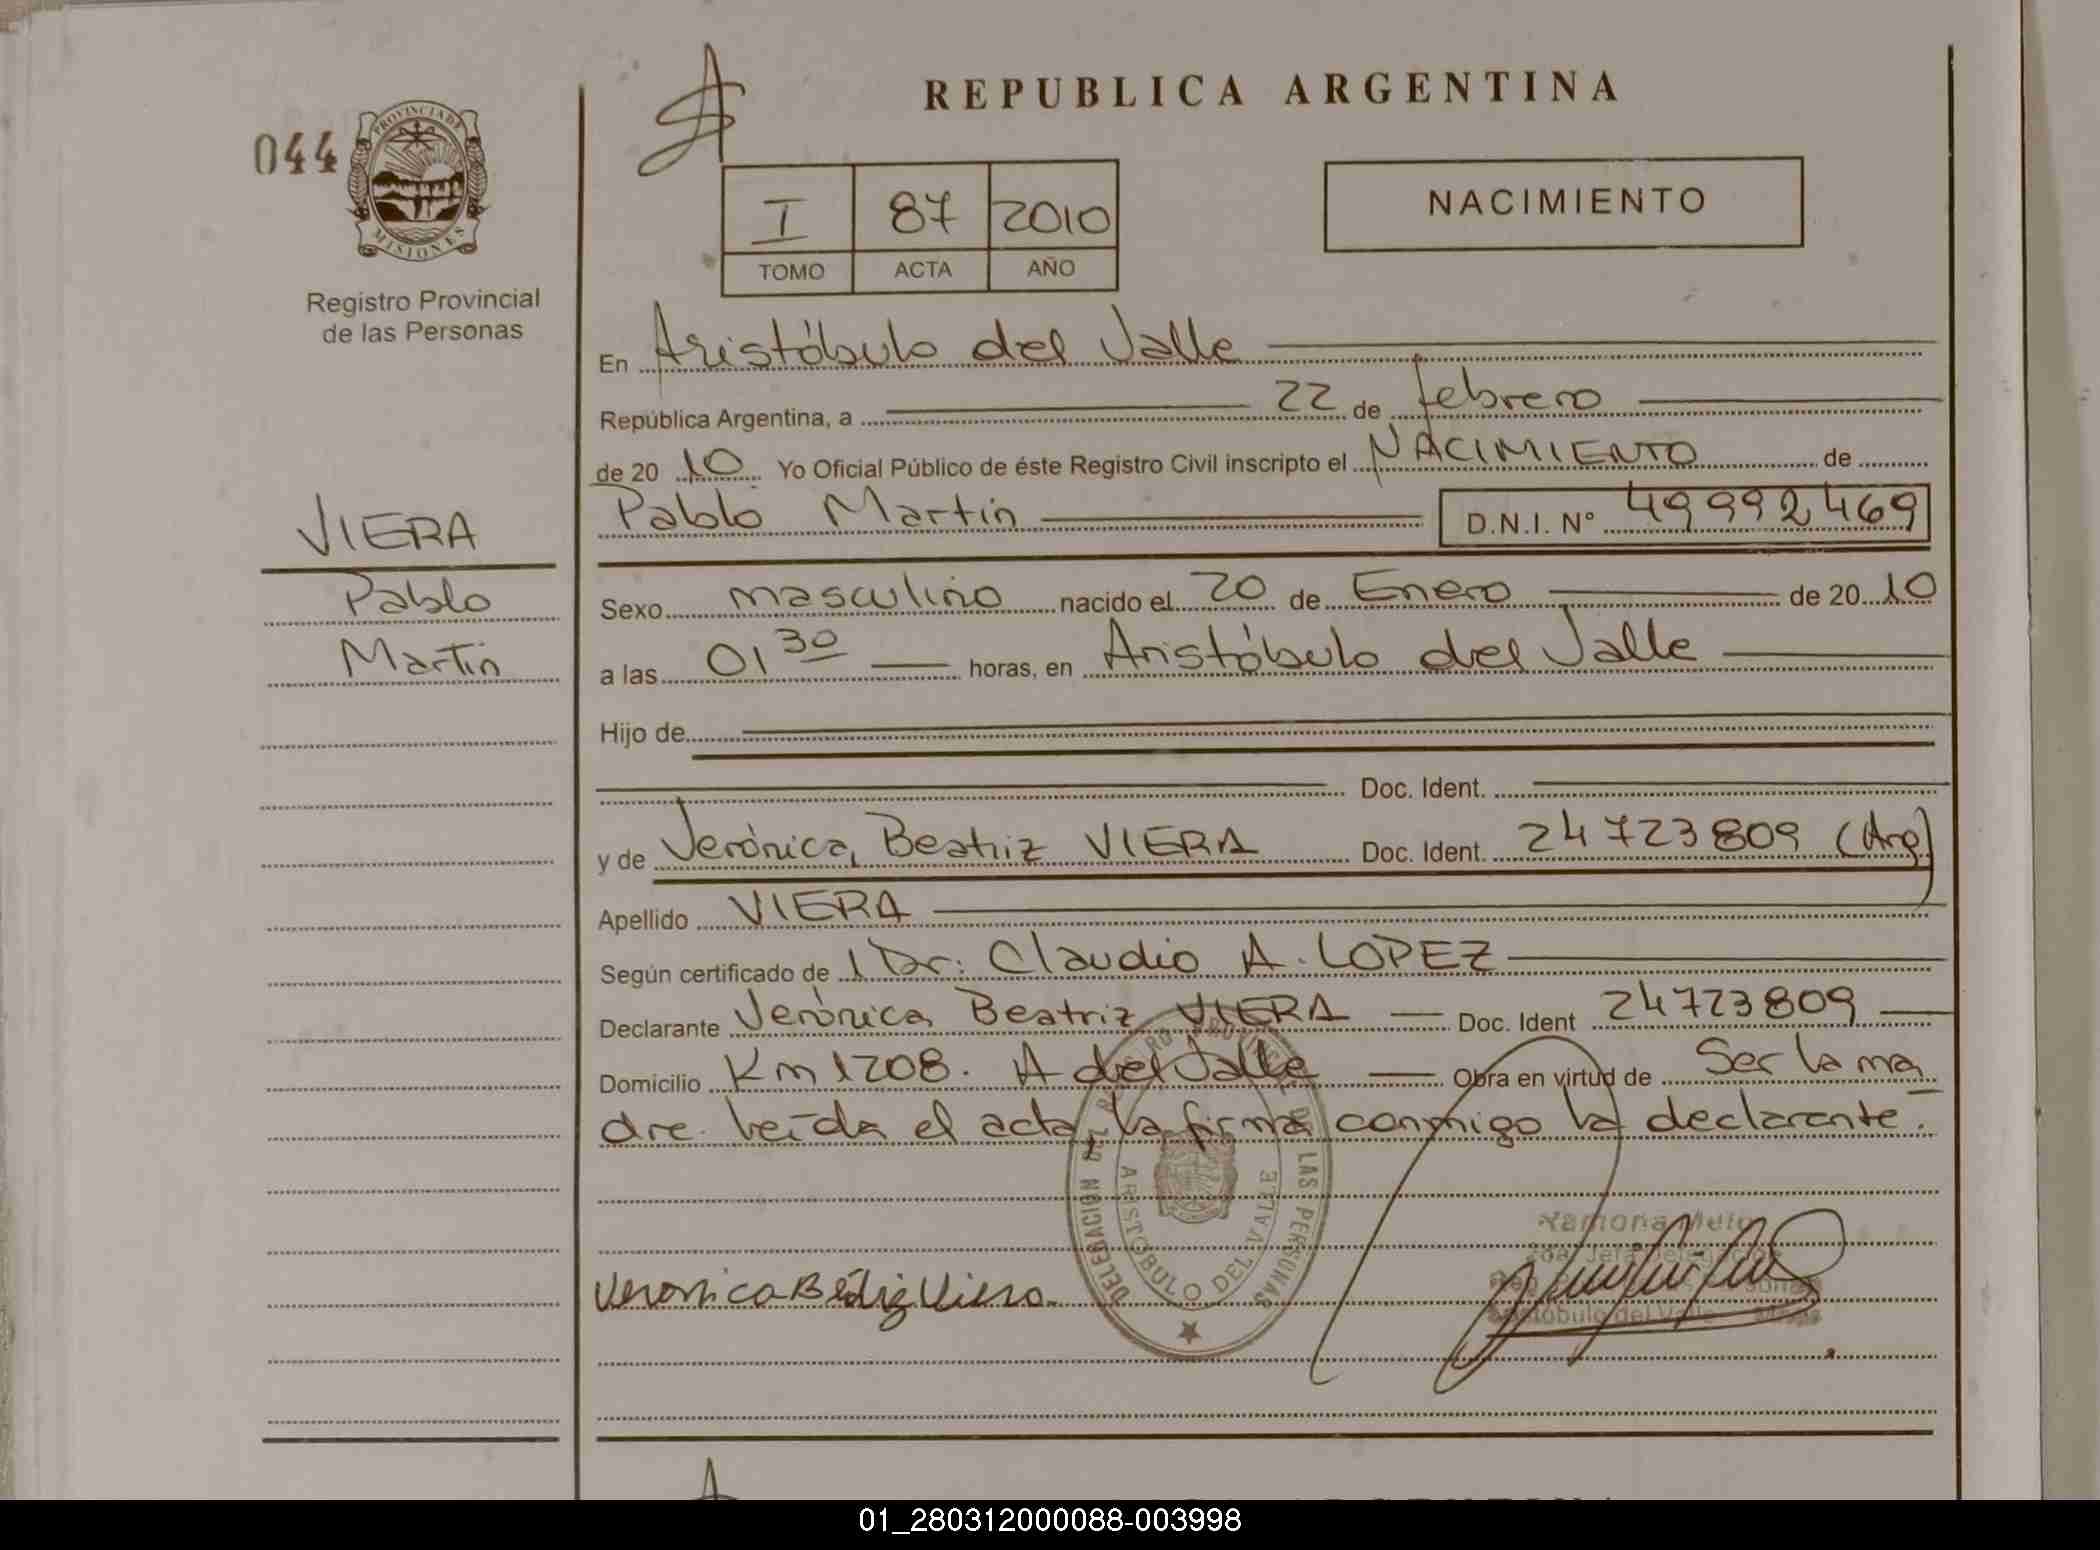 REPUBLICA ARGENTINA
044
PROVINCIA DE
MISIONES
Registro Provincial
de las Personas
I 87 2010
TOMO ACTA AÑO
NACIMIENTO
En Aristóbulo del Valle
República Argentina, a 22 de febrero
de 20 10 Yo Oficial Público de éste Registro Civil inscripto el NACIMIENTO de
Pablo Martin D.N.I. Nº 49992469
VIERA
Pablo
Martin
Sexo masculino nacido el 20 de Enero de 20 10
a las 01 30 horas, en Aristóbulo del Valle
Hijo de
Doc. Ident.
y de Verónica Beatriz VIERA Doc. Ident. 24723809 (Arg)
Apellido VIERA
Según certificado de Dr. Claudio A. LOPEZ
Declarante Verónica Beatriz VIERA Doc. Ident 24723809
Domicilio Km 1208. A del Valle Obra en virtud de Ser la ma
dre. leída el acta, la firma conmigo la declarante.
DELEGACION DEL REGISTRO PROVINCIAL DE LAS PERSONAS
ARISTOBULO DEL VALLE
Ramona
Jefa Delegación
Aristóbulo del Valle
Veronica Beatriz Viera
01_280312000088-003998